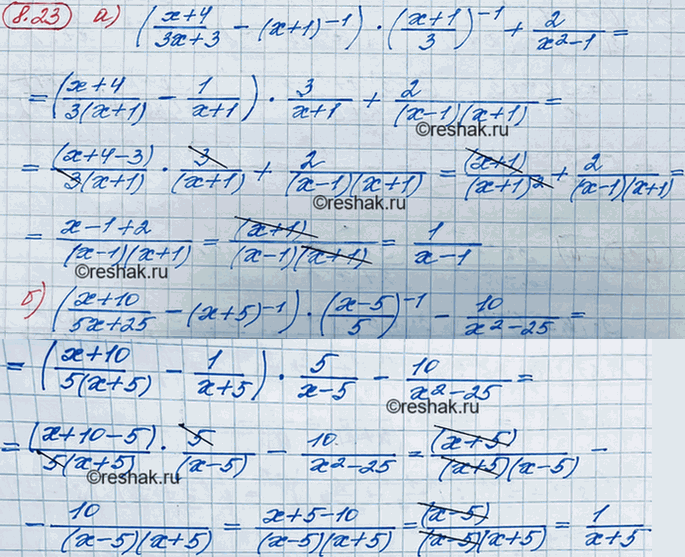 8.23 а) ((x+4)/(3x+3) - (x+1)⁻¹) · ((x+1)/3)⁻¹ + 2/(x²-1) =
= ((x+4)/(3(x+1)) - 1/(x+1)) · 3/(x+1) + 2/((x-1)(x+1)) =
©reshak.ru
= (x+4-3)/(3(x+1)) · 3/(x+1) + 2/((x-1)(x+1)) = (x+1)/(x+1)² + 2/((x-1)(x+1)) =
©reshak.ru
= (x-1+2)/((x-1)(x+1)) = (x+1)/((x-1)(x+1)) = 1/(x-1)
©reshak.ru
б) ((x+10)/(5x+25) - (x+5)⁻¹) · ((x-5)/5)⁻¹ - 10/(x²-25) =
= ((x+10)/(5(x+5)) - 1/(x+5)) · 5/(x-5) - 10/(x²-25) =
©reshak.ru
= (x+10-5)/(5(x+5)) · 5/(x-5) - 10/(x²-25) = (x+5)/((x+5)(x-5)) -
©reshak.ru
- 10/((x-5)(x+5)) = (x+5-10)/((x-5)(x+5)) = (x-5)/((x-5)(x+5)) = 1/(x+5)